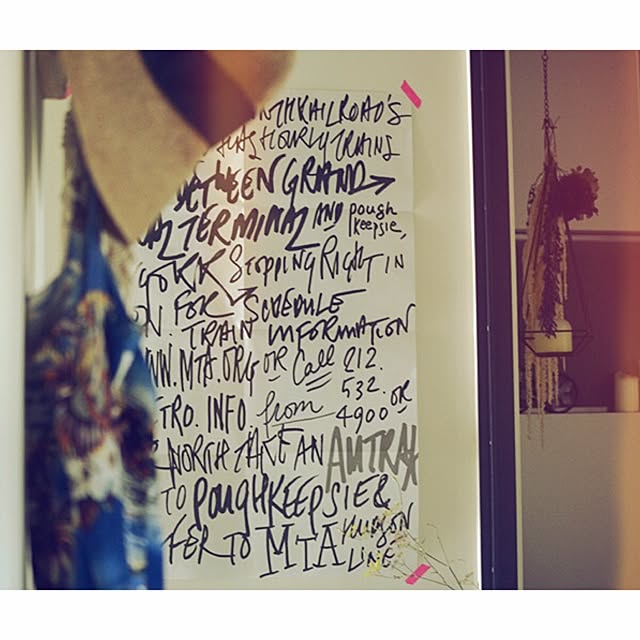 RAILROAD'S
HAS HOURLY TRAINS
BETWEEN GRAND
TERMINAL AND pough
keepsie,
STOPPING RIGHT IN
FOR SCHEDULE
TRAIN INFORMATION
WW.MTA.ORG OR Call 212.
532.
TRO. INFO. from 4900 OR
NORTH TAKE AN AMTRAK
TO POUGHKEEPSIE &
FER TO MTA HUDSON
LINE